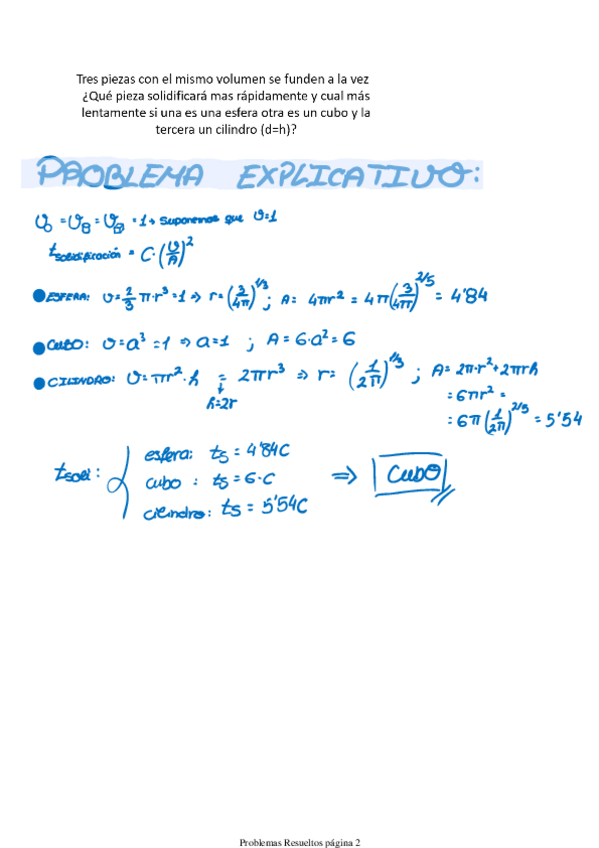 Tres piezas con el mismo volumen se funden a la vez
¿Qué pieza solidificará mas rápidamente y cual más
lentamente si una es una esfera otra es un cubo y la
tercera un cilindro (d=h)?
PROBLEMA EXPLICATIVO:
V○ = V⌭ = V□ = 1 → Suponemos que V=1
t solidificación = C·(V/A)²
● ESFERA: V = 2/3 π·r³ = 1 ⇒ r = (3/4π)^1/3 ; A = 4πr² = 4π(3/4π)^2/5 = 4'84
● CUBO: V = a³ = 1 ⇒ a = 1 ; A = 6·a² = 6
● CILINDRO: V = πr²·h = 2πr³ ⇒ r = (1/2π)^1/3 ; A = 2π·r² + 2πrh
h=2r
= 6πr² =
= 6π(1/2π)^2/5 = 5'54
tsoli:
esfera: ts = 4'84C
cubo : ts = 6·C ⇒ CUBO
cilindro: ts = 5'54C
Problemas Resueltos página 2